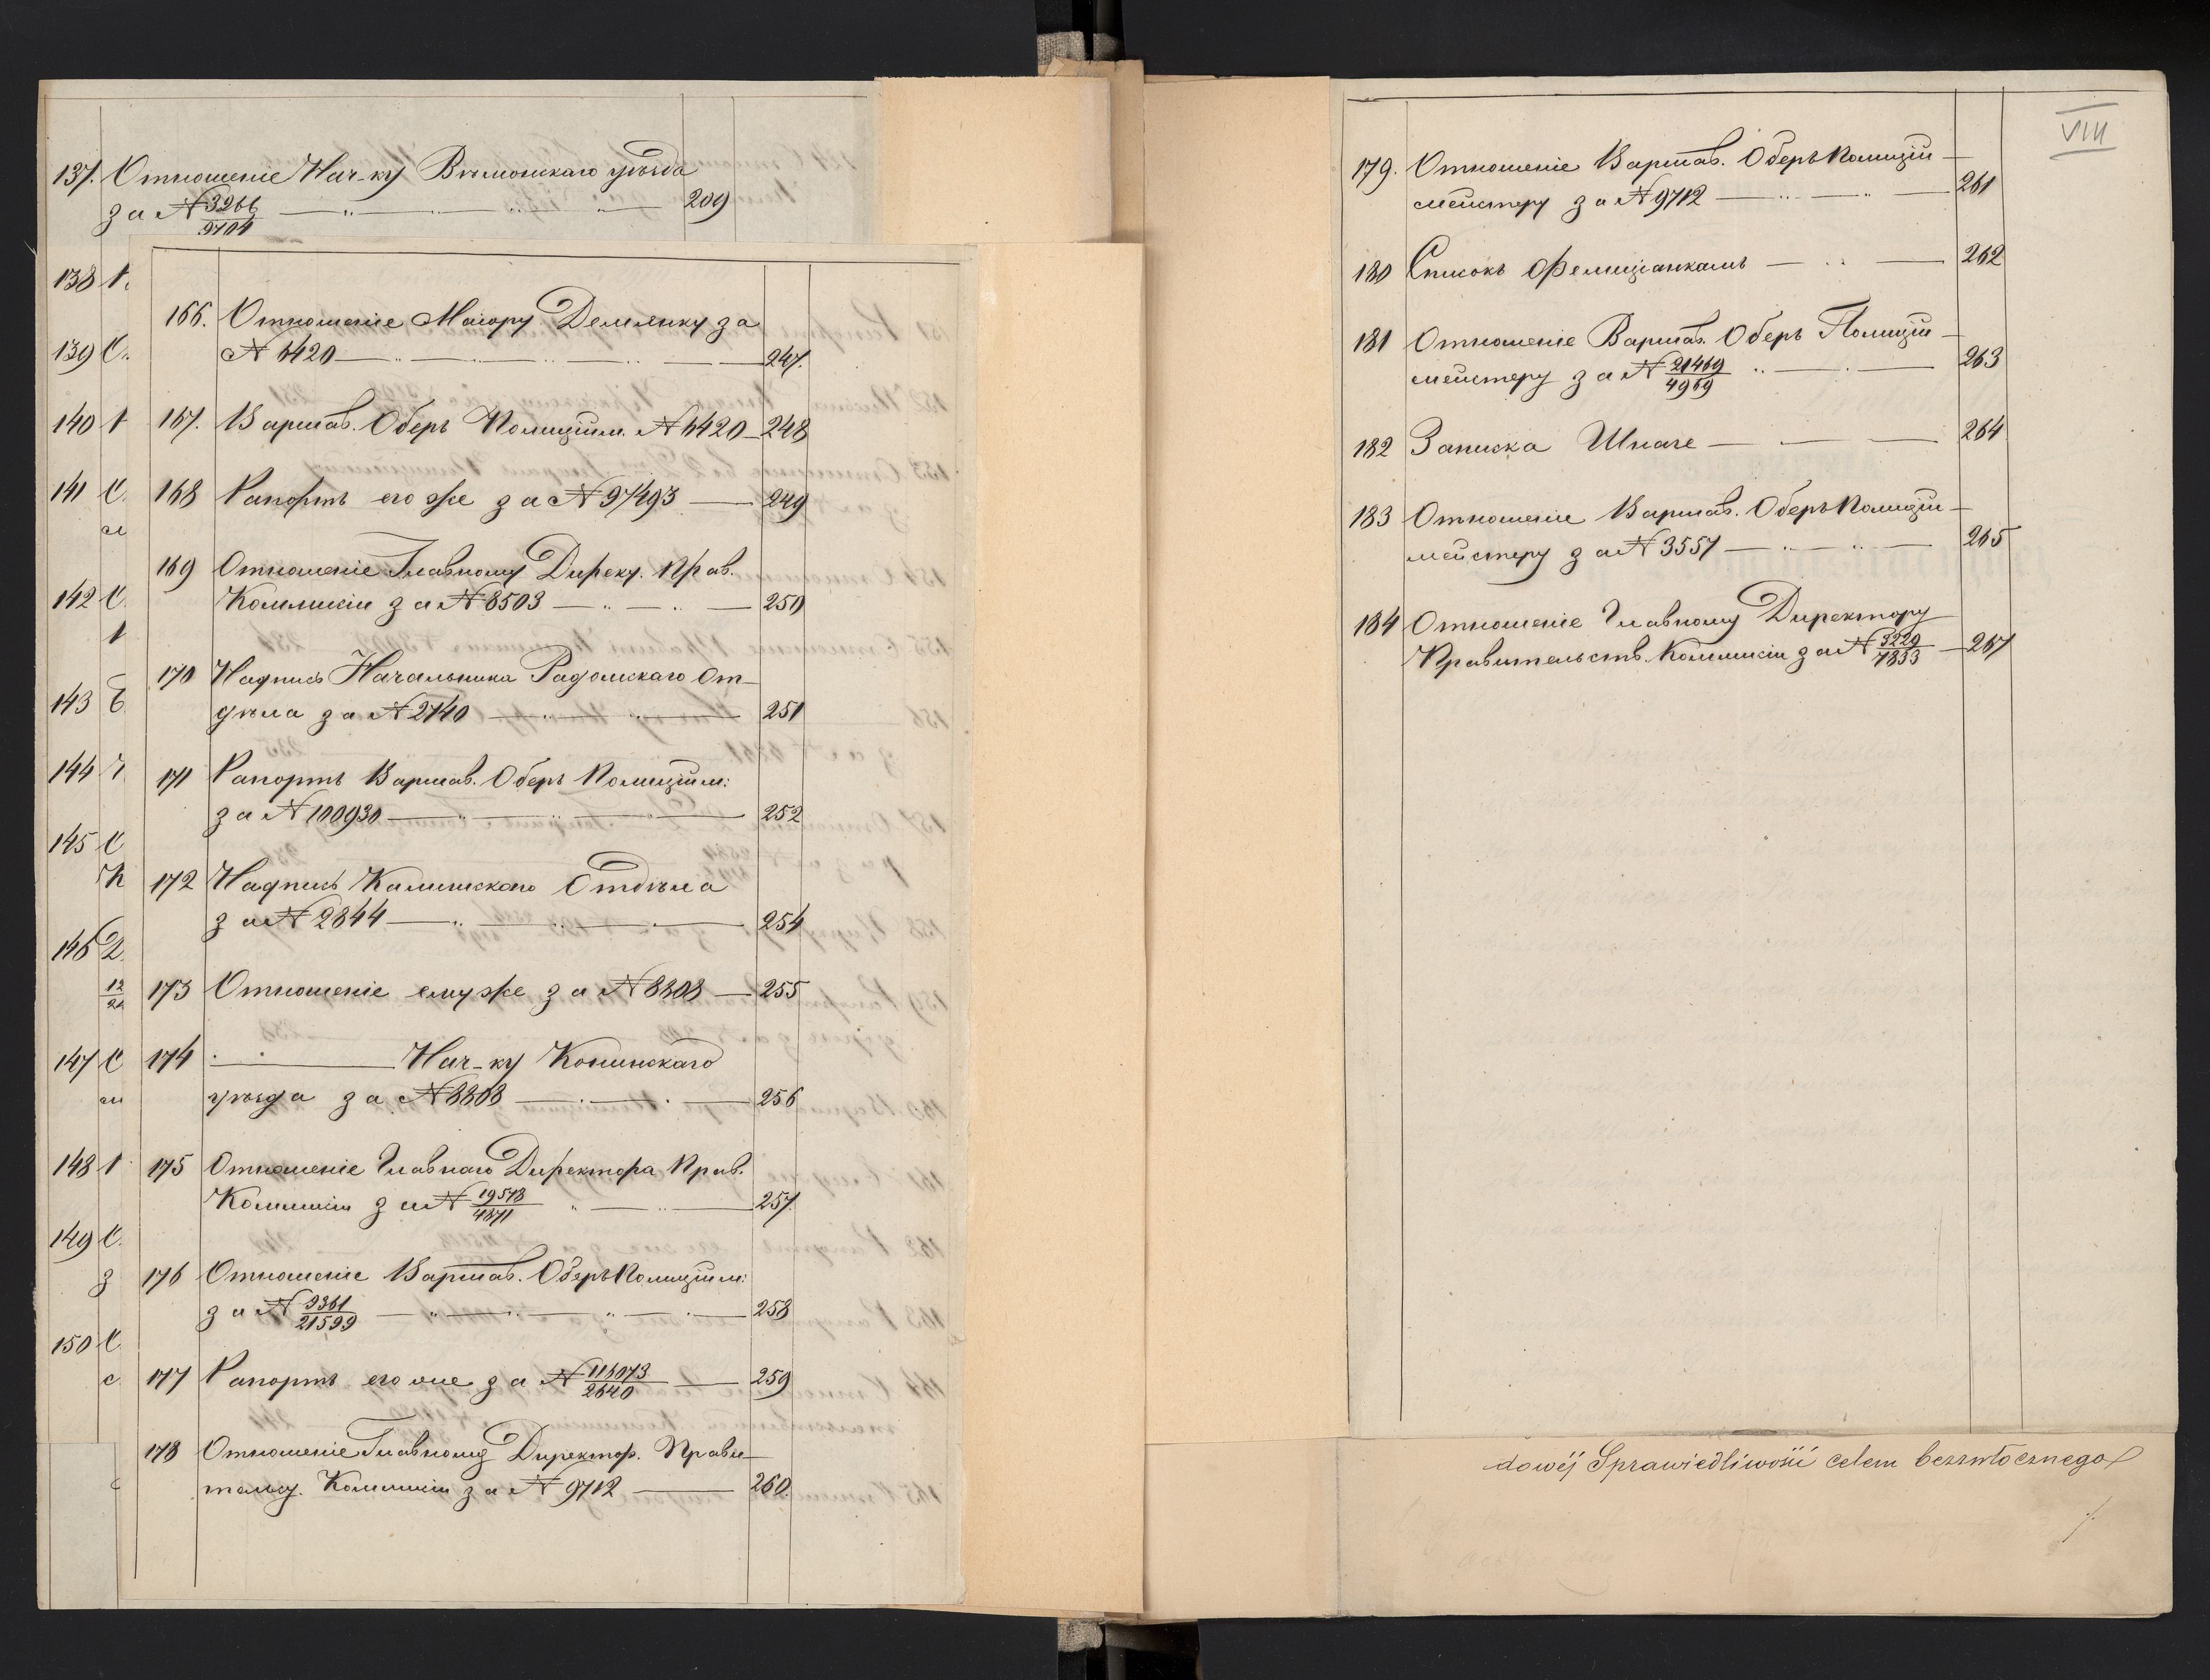 137. Отношеніе Нач-ку Вѣлюнскаго уѣзда
за № 3266/9704 — 209
138
139 О.
140
141 О.
142 О.
143
144
145 О
146 Д.
12/24
147 О
148
149 О.
з
150 О
с
166. Отношеніе Маіору Демянку за
№ 6420 — 247.
167. Варшав. Оберъ Полиціим. № 6420 — 248
168 Рапортъ его же за № 97493 — 249
169 Отношеніе Главному Дирек. Прав.
Коммисіи за № 8503 — 250
170 Надпись Начальника Радомскаго От-
дѣла за № 2140 — 251
171 Рапортъ Варшав. Оберъ Полиціим:
за № 100930 — 252
172 Надпись Калишскаго Отдѣла
за № 2844 — 254
173 Отношеніе ему же за № 8808 — 255
174 — Нач-ку Конинскаго
уѣзда за № 8808 — 256
175 Отношеніе Главнаго Директора Прав.
Коммисіи за № 19578/4871 — 257.
176 Отношеніе Варшав. Оберъ Полиціим:
за № 9361/21599 — 258
177 Рапортъ его же за № 116073/2640 — 259
178 Отношеніе Главному Директор. Прави-
тельс. Коммисіи за № 9712 — 260.
VIII
179. Отношеніе Варшав. Оберъ Полиціи-
мейстеру за № 9712 — 261
180 Списокъ Фелиціанкамъ — 262
181 Отношеніе Варшав. Оберъ Полиціи-
мейстеру за № 21469/4969 — 263
182 Записка Шпаче — 264
183 Отношеніе Варшав. Оберъ Полиціи-
мейстеру за № 3557 — 265
184 Отношеніе Главному Директору
Правительств. Коммисіи за № 3229/7833 — 267
dowéj Sprawiedliwości celem bezzwłocznego